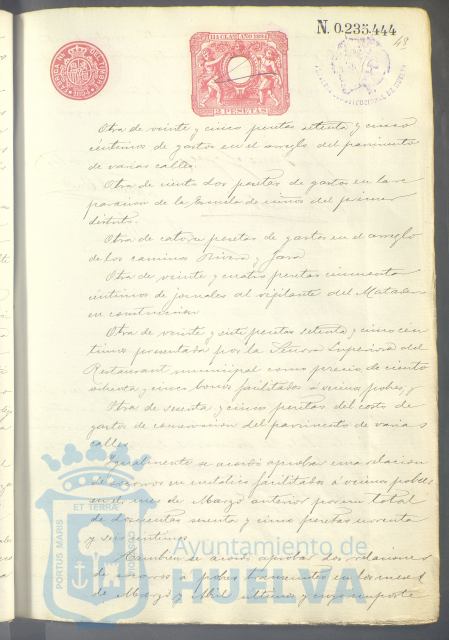 N. 0.235.444
48
11A CLASE AÑO 1894
2 PESETAS
Otra de veinte y cinco pesetas setenta y cinco
céntimos de gastos en el arreglo del pavimento
de varias calles
Otra de ciento dos pesetas de gastos en la re
paracion de la Escuela de niños del primer
distrito.
Otra de catorce pesetas de gastos en el arreglo
de los caminos Rivera y Jara
Otra de veinte y cuatro pesetas cincuenta
céntimos de jornales al vigilante del Matadero
en construccion
Otra de veinte y siete pesetas setenta y cinco cén
timos presentada por la Señora Superiora del
Restaurant municipal como precio de ciento
ochenta y cinco bonos facilitados á vecinos pobres, y
Otra de sesenta y cinco pesetas del costo de
gastos de conservacion del pavimento de varias
calles
Igualmente se acordó aprobar una relacion
de socorros en metalico facilitados á vecinos pobres
en el mes de Marzo anterior por un total
de doscientas sesenta y cinco pesetas noventa
y seis céntimos
Tambien se acordó aprobar dos relaciones
de socorros á pobres transeuntes en los meses
de Marzo y Abril ultimos y cuyo importe
PORTUS MARIS
ET TERRÆ
Ayuntamiento de
HUELVA